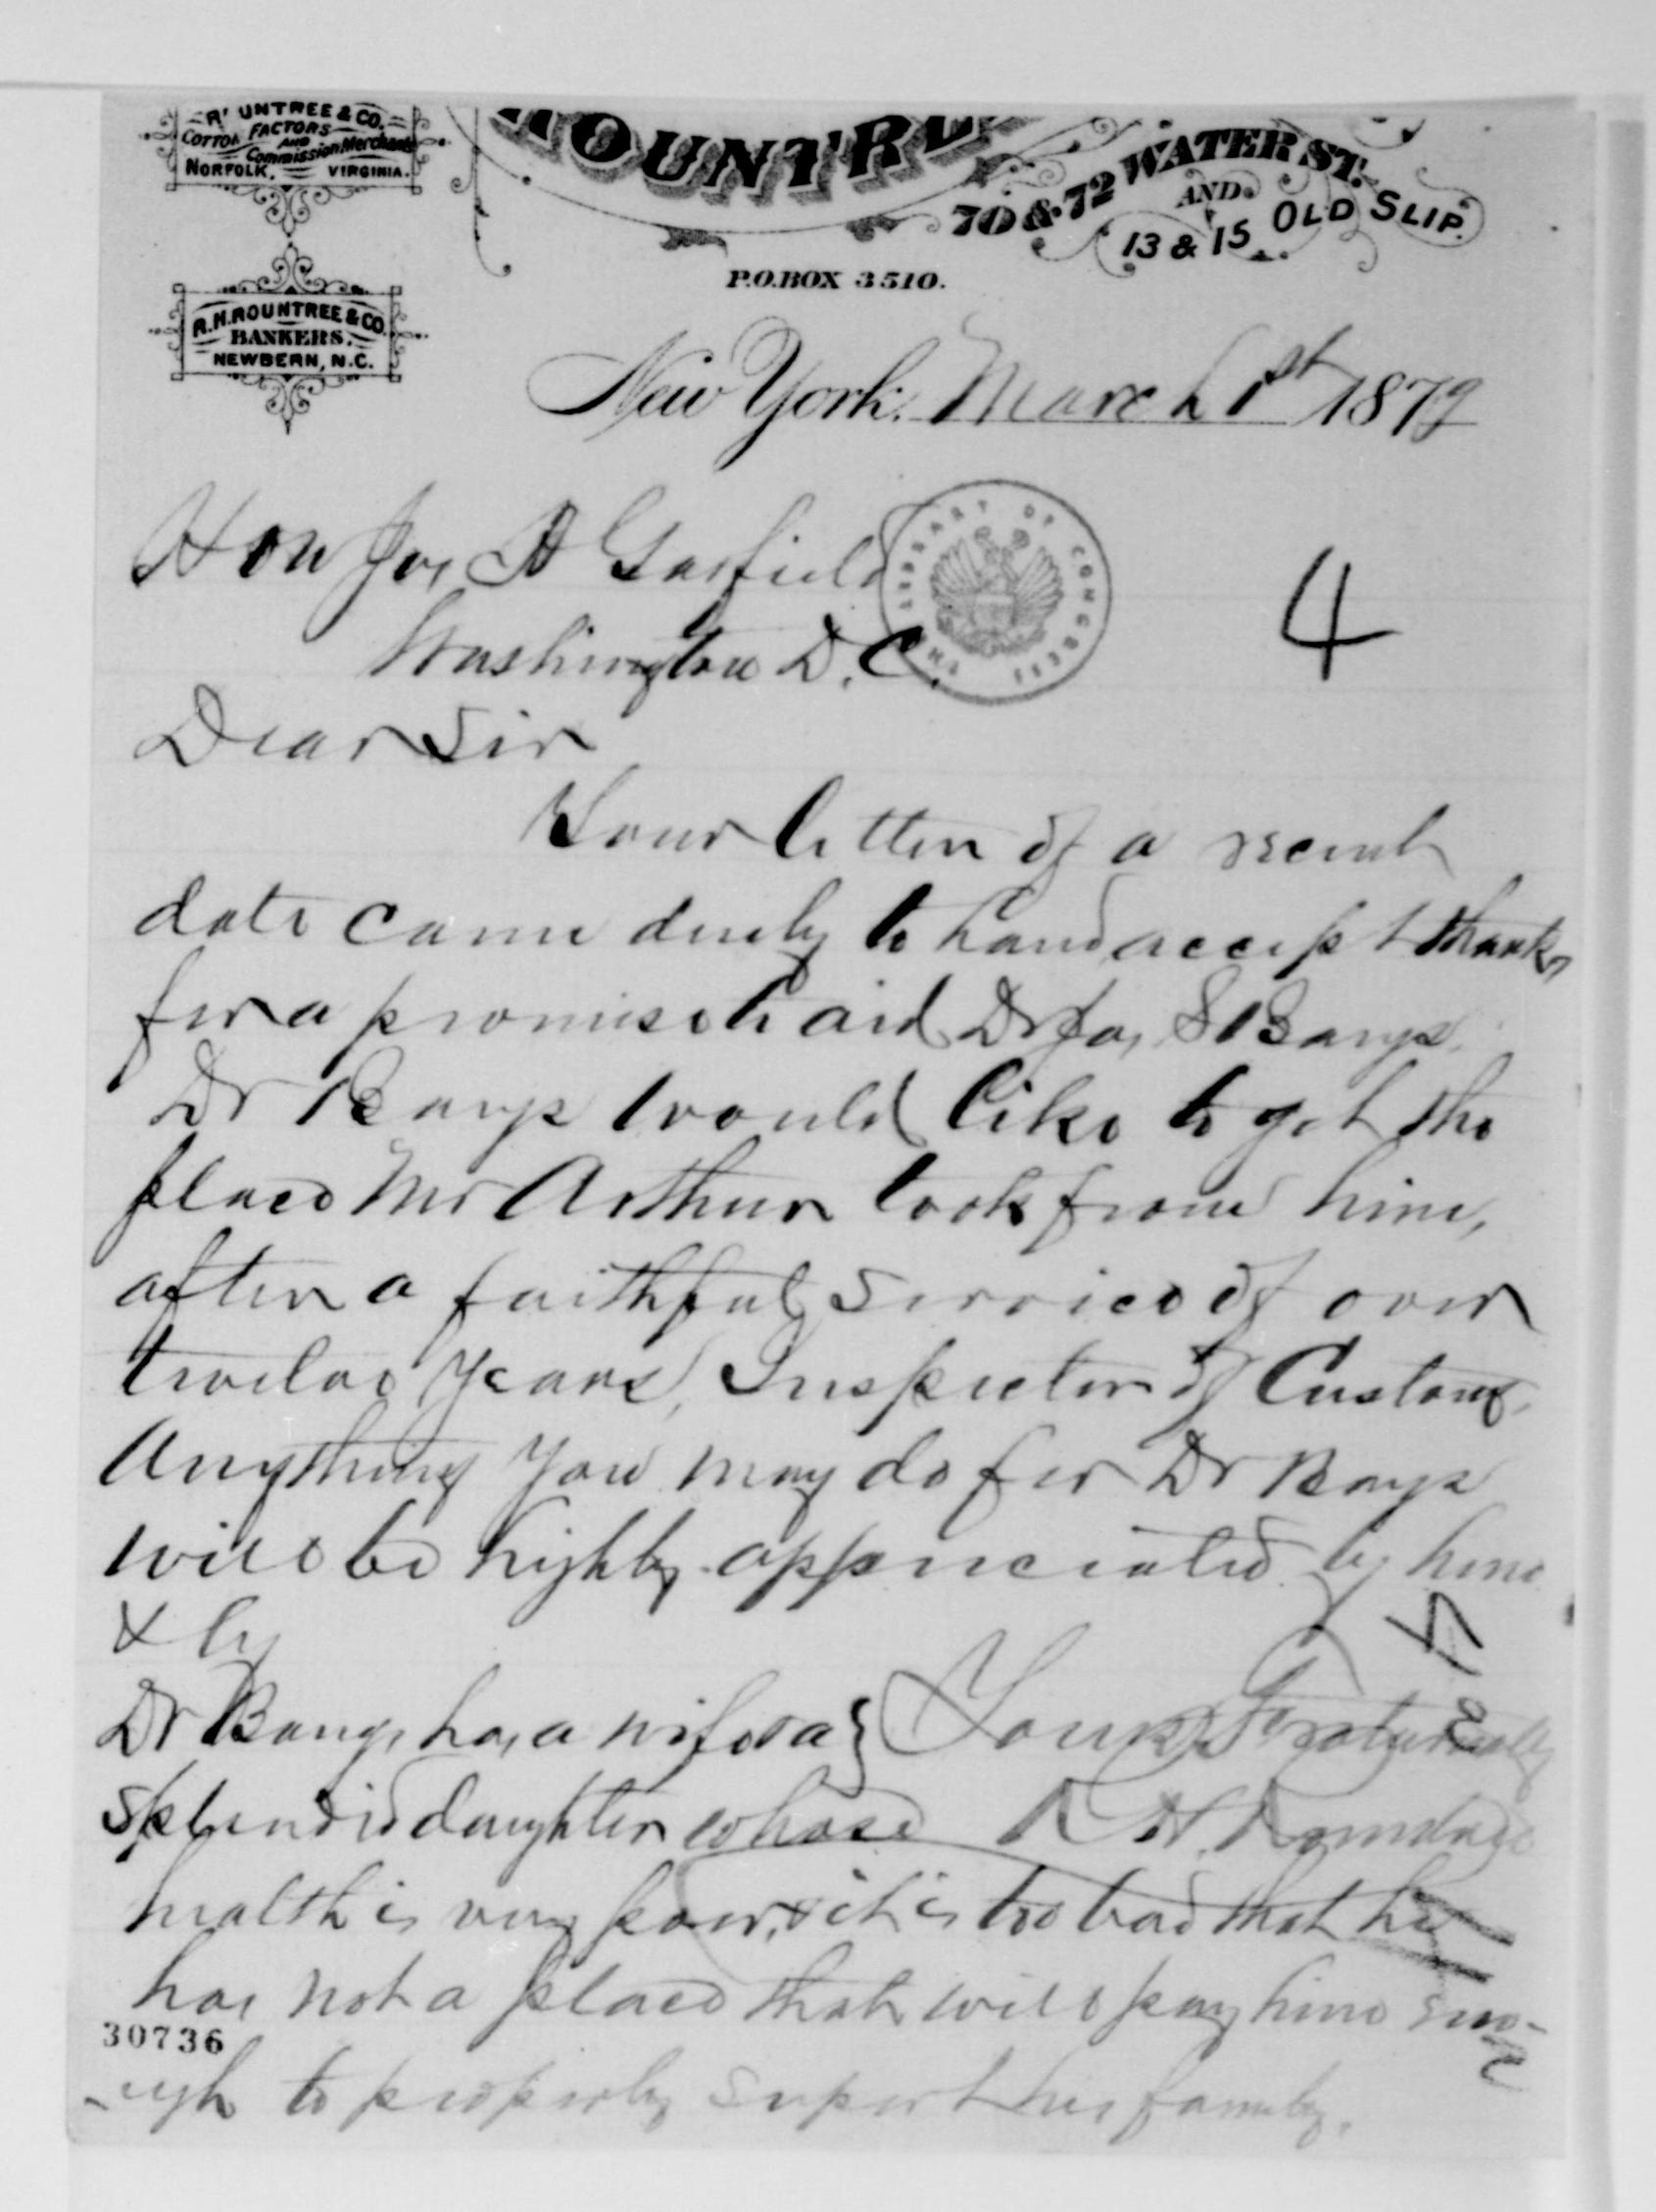 R UNTREE & CO.
COTTON FACTORS
AND
Commission Merchants
NORFOLK, VIRGINIA.
ROUNTRE
70 & 72 WATER ST.
AND
13 & 15 OLD SLIP.
P.O. BOX 3510.
R.H. ROUNTREE & CO.
BANKERS,
NEWBERN, N.C.
New York. March 1st 1879
Hon Jas A Garfield
THE LIBRARY OF CONGRESS
4
Washington D.C.
Dear Sir
Your letter of a recent
date came duely to hand accept thanks
for a promise to aid Dr Jas S Bangs.
Dr Bangs would like to get the
place Mr Arthur took from him,
after a faithful service of over
twelve years, Inspector of Customs.
Anything you may do for Dr Bangs
will be highly appreciated by him
& by
Yours Fraternally
Dr Bangs has a wife & a
splendid daughter whose
health is very poor, & it is too bad that he
has not a place that will pay him eno-
-ugh to properly suport his family.
30736